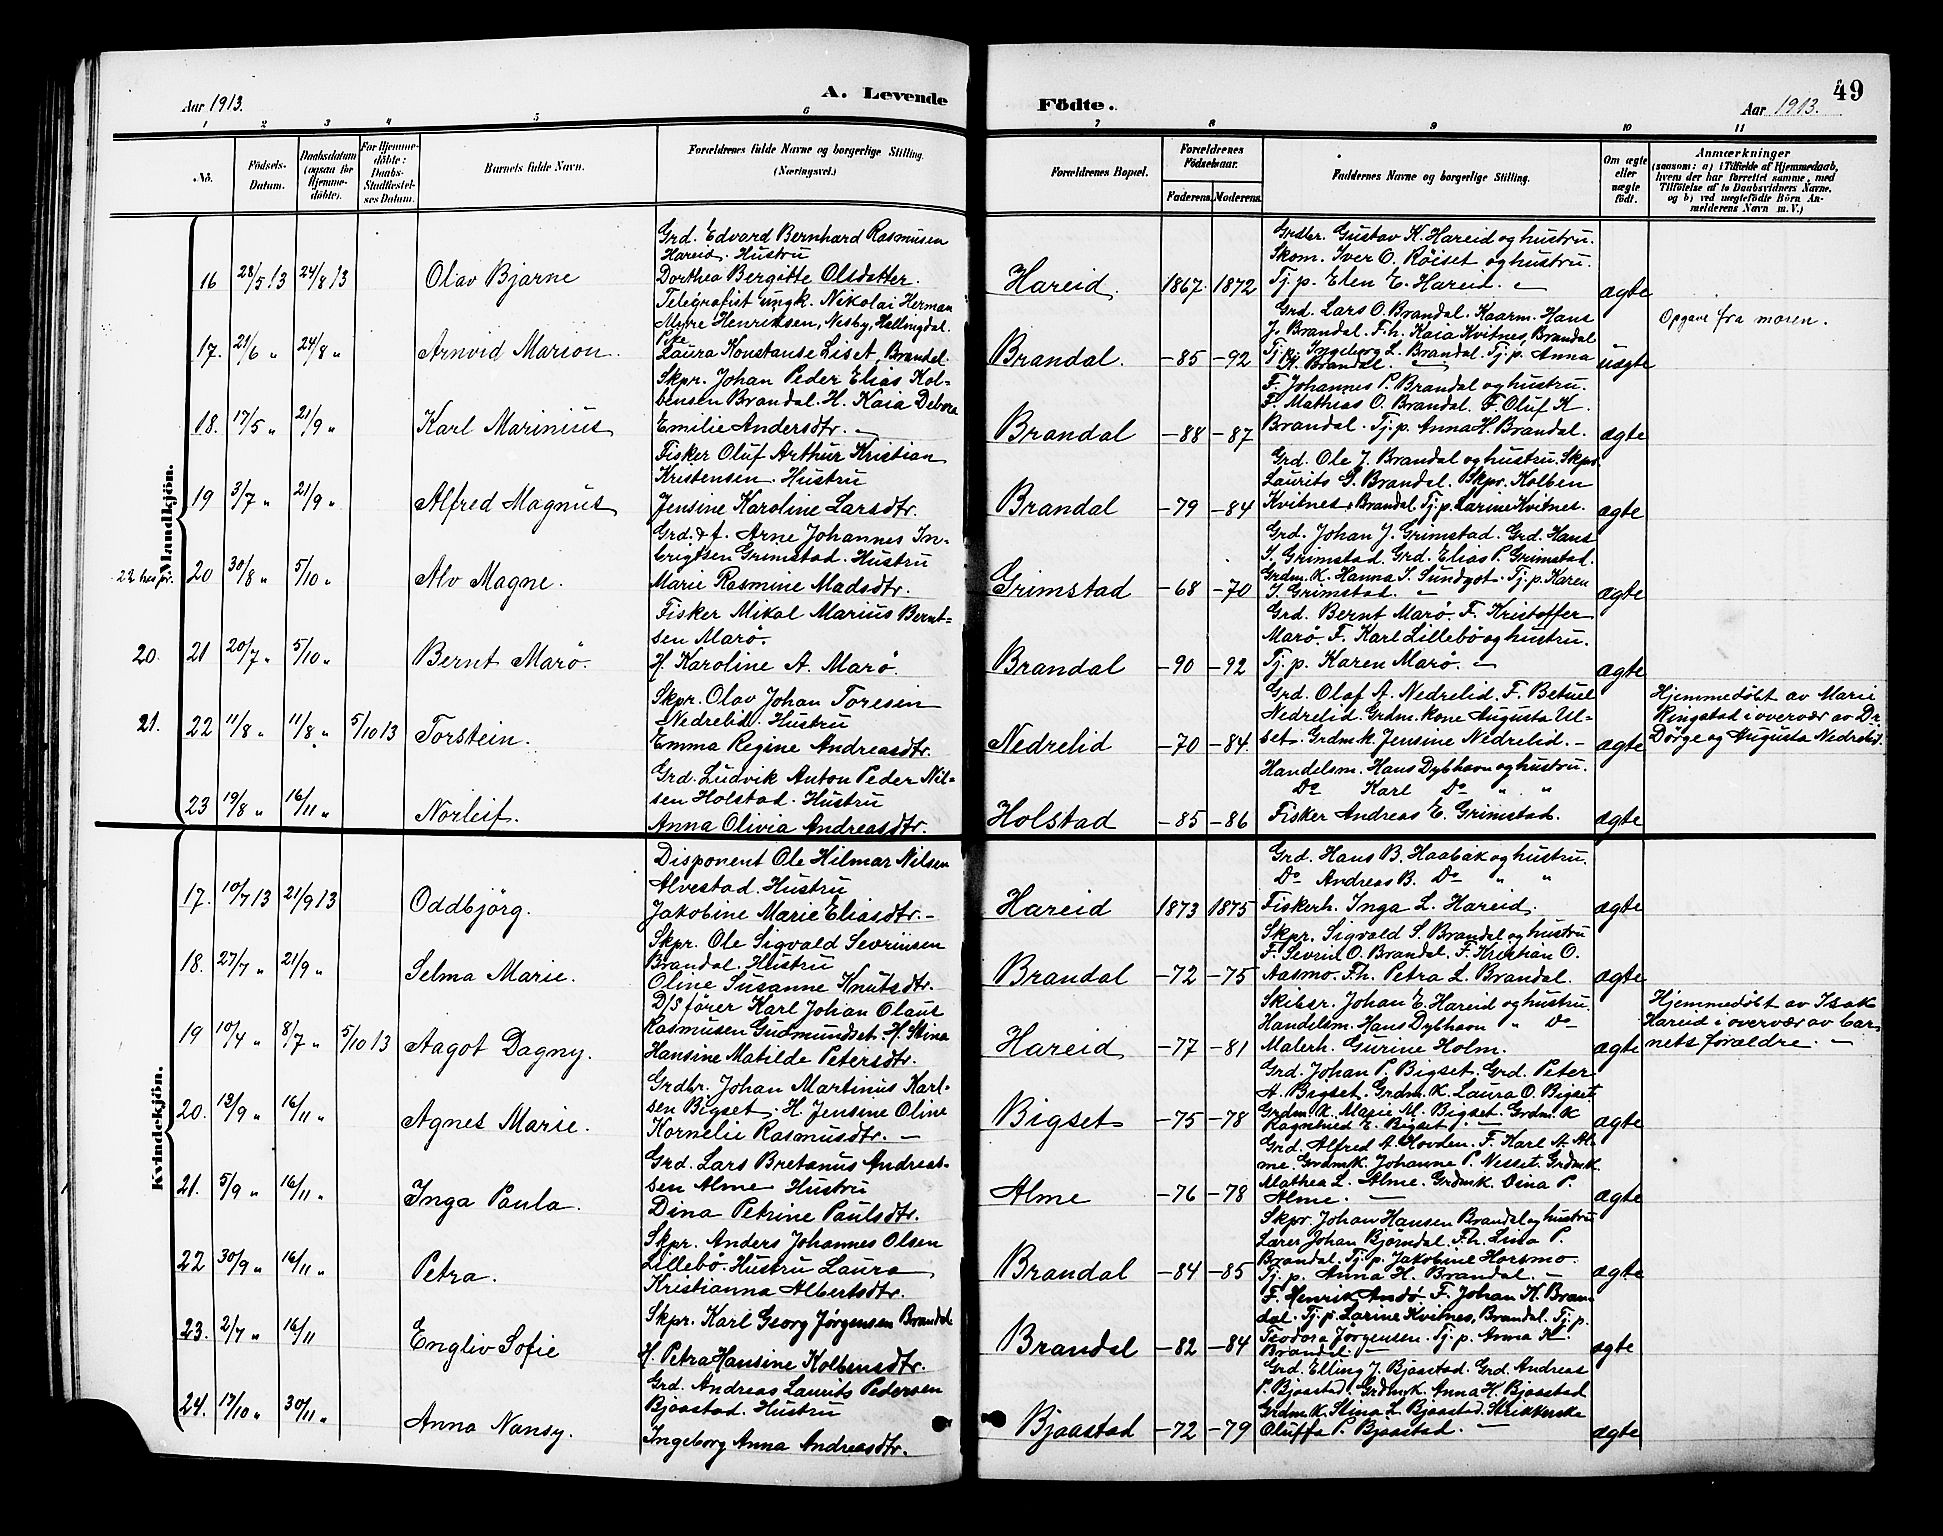 49
Aar 1913.
A. Levende
Födte.
Aar 1913.
1 2 3 4 5 6 7 8 9 10 11
No.
Födsels-Datum.
Daabsdatum (ogsaa for Hjemme-döbte).
For Hjemme-döbte: Daabs-Stadfæstel-ses Datum.
Barnets fulde Navn.
Forældrenes fulde Navne og borgerlige Stilling.
(Næringsvei.)
Forældrenes Bopæl.
Forældrenes Födselsaar.
Faderens. Moderens.
Faddernes Navne og borgerlige Stilling.
Om ægte eller uægte födt.
Anmærkninger
(saasom: a) i Tilfælde af Hjemmedaab,
hvem der har forrettet samme, med
Tilföielse af to Daabsvidners Navne.
og b) ved uægtefödte Börn An-
melderens Navn m. V.)
Mandkjön.
16 28/5 13 24/8 13
Olav Bjarne
Grd. Edvard Bernhard Rasmusen
Hareid. Hustru
Dorthea Bergitte Olsdatter.
Hareid. 1867. 1872
Grdbr. Gustav K. Hareid og hustru.
Skom. Iver O. Röiset og hustru.
Tj. p. Elen E. Hareid. -
ægte
17. 21/6 " 24/8 "
Arnvid Marion.
Telegrafist Ungk. Nikolai Herman
Myre Henriksen, Nesby, Hallingdal.
Pike
Laura Konstanse Liset, Brandal.
Brandal. -85 -92
Grd. Lars O. Brandal. Kaarm. Hans
J. Brandal. F. h. Kaia Kvitnes, Brandal
Tj. p. Ingeborg L. Brandal. Tj. p. Anna
H. Brandal. -
uægte
Opgave fra moren.
18. 17/5 " 21/9 "
Karl Marinius
Skpr. Johan Peder Elias Kol-
bensen Brandal. H. Kaia Debora
Emilie Andersdtr. -
Brandal -88 -87
F. Johannes P. Brandal og hustru.
F. Mathias O. Brandal. F. Oluf K.
Brandal. Tj. p. Anna H. Brandal.
ægte
19 3/7 " 21/9 "
Alfred Magnus
Fisker Oluf Arthur Kristian
Kristensen. Hustru
Jensine Karoline Larsdtr.
Brandal -79 -84
Grd. Ole J. Brandal og hustru. Skpr.
Laurits G. Brandal. Skpr. Kolben
Kvitnes, Brandal. Tj. p. Larine Kvitnes.
ægte
20 30/8 " 5/10 "
Alv Magne.
Grd. & f. Arne Johannes In-
brigtsen Grimstad. Hustru
Marie Rasmine Madsdtr.
Grimstad -68 -70
Grd. Johan J. Grimstad. Grd. Hans
I. Grimstad. Grd. Elias P. Grimstad.
Grdm. K. Hanna I. Sundgot. Tj. p. Karen
I. Grimstad. -
ægte
20. 21 20/7 " 5/10 "
Bernt Marö.
Fisker Mikal Marius Bernt-
sen Marö.
H. Karoline A. Marö.
Brandal -90 -92
Grd. Bernt Marö. F. Kristoffer
Marö. F. Karl Lillebö og hustru.
Tj. p. Karen Marö. -
ægte
21. 22 11/8 " 11/8 " 5/10 13
Torstein.
Skpr. Olav Johan Toresen
Nedrelid. Hustru
Emma Regine Andreasdtr.
Nedrelid -70 -84
Grd. Olaf A. Nedrelid. F. Betuel
Nedrelid. Grdm. kone Augusta Ul-
set. Grdm. k. Jensine Nedrelid. -
ægte
Hjemmedöbt av Marie
Ringstad i overvær av Dr
Dörge og Augusta Nedrelid.
23 19/8 " 16/11 "
Norleif.
Grd. Ludvik Anton Peder Nil-
sen Holstad. Hustru
Anna Olivia Andreasdtr.
Holstad -85 -86
Handelsm. Hans Dybhavn og hustru.
Do Karl Do " "
Fisker Andreas E. Grimstad.
ægte
Kvindekjön.
17. 10/7 13 21/9 13
Oddbjörg.
Disponent Ole Hilmar Nilsen
Alvestad. Hustru
Jakobine Marie Eliasdtr. -
Hareid 1873 1875
Grd. Hans B. Haabak og hustru.
Do Andreas B. Do " "
Fiskerh. Inga L. Hareid.
ægte
18. 27/7 " 21/9 "
Selma Marie.
Skpr. Ole Sigvald Sevrinsen
Brandal. Hustru
Oline Susanne Knutsdtr.
Brandal -72 -75
Skpr. Sigvald S. Brandal og hustru
F. Sevrin O. Brandal. F. Kristian O.
Aasmo. F. h. Petra L. Brandal.
ægte
19 10/4 " 8/7 " 5/10 13
Aagot Dagny.
D/S förer Karl Johan Olaus
Rasmusen Gudmundset. H. Stina
Hansine Matilde Petersdtr.
Hareid -77 -81
Skibsr. Johan E. Hareid og hustru
Handelsm. Hans Dybhavn " Do
Malerh. Gurine Holm.
ægte
Hjemmedöbt av Isak
Hareid i overvær av bar-
nets forældre. -
20. 13/9 " 16/11 "
Agnes Marie.
Grdbr. Johan Martinus Karl-
sen Bigset. H. Jensine Oline
Kornelie Rasmusdtr. -
Bigset -75 -78
Grd. Johan P. Bigset. Grd. Peter
A. Bigset. Grdm. K. Laura O. Bigset
Grdm. K. Marie M. Bigset. Grdm. K
Ragnhild E. Bigset. -
ægte
21. 5/9 " 16/11 "
Inga Paula.
Grd. Lars Bretanus Andreas-
sen Alme Hustru
Dina Petrine Paulsdtr.
Alme -76 -78
Grd. Alfred A. Hovden. F. Karl A. Al-
me. Grdmk. Johanne P. Nesset. Grdmk.
Mathea L. Alme. Grdmk. Dina P.
Alme. -
ægte
22 30/9 " 16/11 "
Petra.
Skpr. Anders Johannes Olsen
Lillebö. Hustru Laura
Kristianna Albertsdtr.
Brandal -84 -85
Skpr. Johan Hansen Brandal og hustru
Lærer Johan Björndal. F. h. Lina P.
Brandal. Tj. p. Jakobine Horsmo.
Tj. p. Anna H. Brandal. -
ægte
23. 2/7 " 16/11
Engliv Sofie
Skpr. Karl Georg Jørgensen Brandal
H. Petra Hansine Kolbensdtr.
Brandal -82 -84
F. Henrik Andö F. Johan H. Bran-
dal. Tj. p. Larine Kvitnes, Brandal. Tj. p.
Teodora Jørgensen. Tj. p. Anna H.
Brandal. -
ægte
24. 13/10 " 30/11 "
Anna Nansy.
Grd. Andreas Laurits Pedersen
Bjaastad. Hustru
Ingeborg Anna Andreasdtr.
Bjaastad -72 -79
Grd. Elling J. Bjaastad. Grd. Andreas
P. Bjaastad. Grdmk. Anna H. Bjaastad
Grdm. K. Stina L. Bjaastad. Strikkerske
Oluffa P. Bjaastad. -
ægte